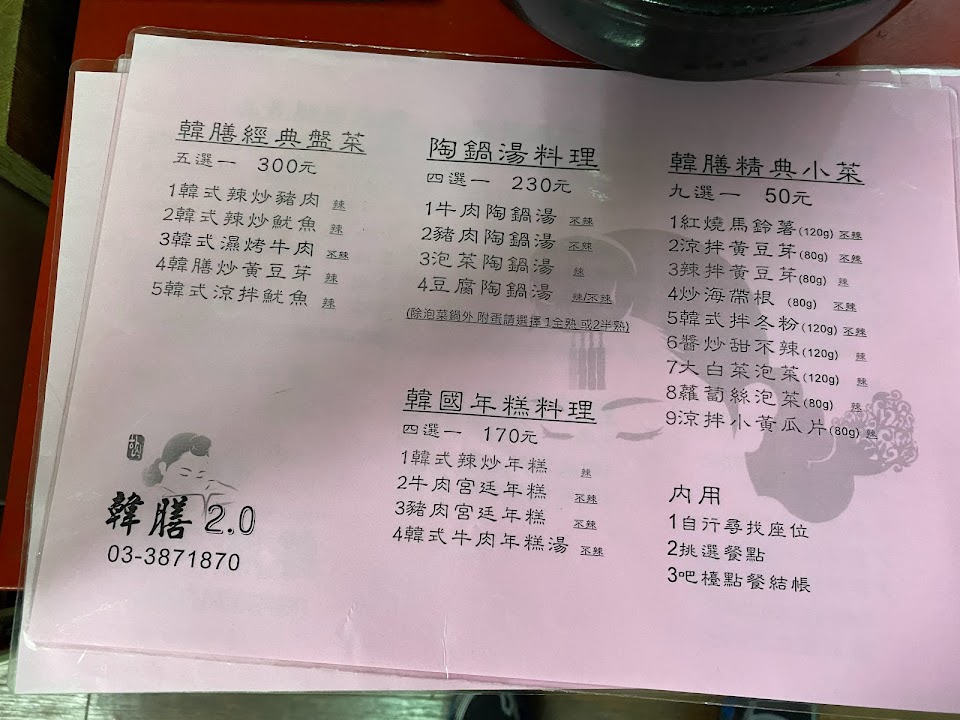 韓膳經典盤菜
五選一 300元
1韓式辣炒豬肉 辣
2韓式辣炒魷魚 辣
3韓式濕烤牛肉 不辣
4韓膳炒黃豆芽 辣
5韓式涼拌魷魚 辣
陶鍋湯料理
四選一 230元
1牛肉陶鍋湯 不辣
2豬肉陶鍋湯 不辣
3泡菜陶鍋湯 辣
4豆腐陶鍋湯 辣/不辣
(除泡菜鍋外 附蛋請選擇 1全熟 或2半熟)
韓國年糕料理
四選一 170元
1韓式辣炒年糕 辣
2牛肉宮廷年糕 不辣
3豬肉宮廷年糕 不辣
4韓式牛肉年糕湯 不辣
韓膳精典小菜
九選一 50元
1紅燒馬鈴薯(120g) 不辣
2涼拌黃豆芽(80g) 不辣
3辣拌黃豆芽(80g) 辣
4炒海帶根 (80g) 不辣
5韓式拌冬粉(120g) 不辣
6醬炒甜不辣(120g) 辣
7大白菜泡菜(120g) 辣
8蘿蔔絲泡菜(80g) 辣
9涼拌小黃瓜片(80g) 辣
內用
1自行尋找座位
2挑選餐點
3吧檯點餐結帳
韓膳2.0
03-3871870